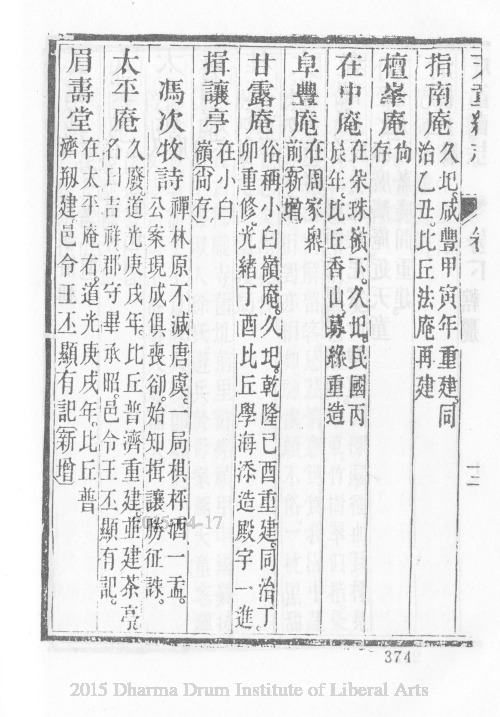 天童續志 卷 十二
指南庵 久圮。咸豐甲寅年重建。同
治乙丑。比丘法庵再建
檀峯庵 尙
存
在中庵 在朵珠嶺下。久圮。民國丙
辰年。比丘香山募緣重造
阜豐庵 在周家㟁
前〔新增〕
甘露庵 俗稱小白嶺庵。久圮。乾隆己酉重建。同治丁
卯重修。光緒丁酉比丘學海添造殿宇一進。
揖讓亭 在小白
嶺〔尙存〕
馮次牧詩 禪林原不減唐虞。一局棋枰酒一盂。
公案現成俱喪卻。始知揖讓勝征誅。
太平庵 久廢。道光庚戌年。比丘普濟重建。並建茶亭。
名曰吉祥。郡守畢承昭。邑令王丕顯有記。
眉壽堂 在太平庵右。道光庚戌年。比丘普
濟刱建。邑令王丕顯有記〔新增〕
2015-04-17
374
2015 Dharma Drum Institute of Liberal Arts